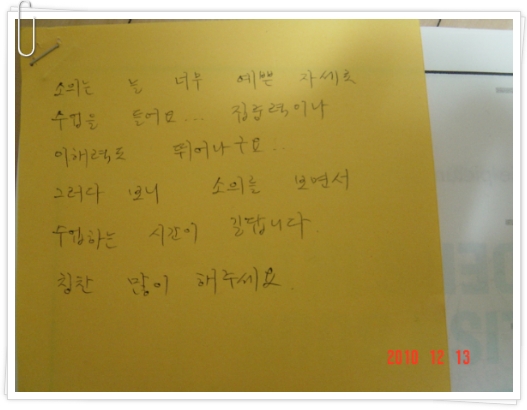 소의는 늘 너무 예쁜 자세로
수업을 들어요... 집중력이나
이해력도 뛰어나구요..
그러다 보니 소의를 보면서
수업하는 시간이 길답니다.
칭찬 많이 해주세요.
2010 12 13